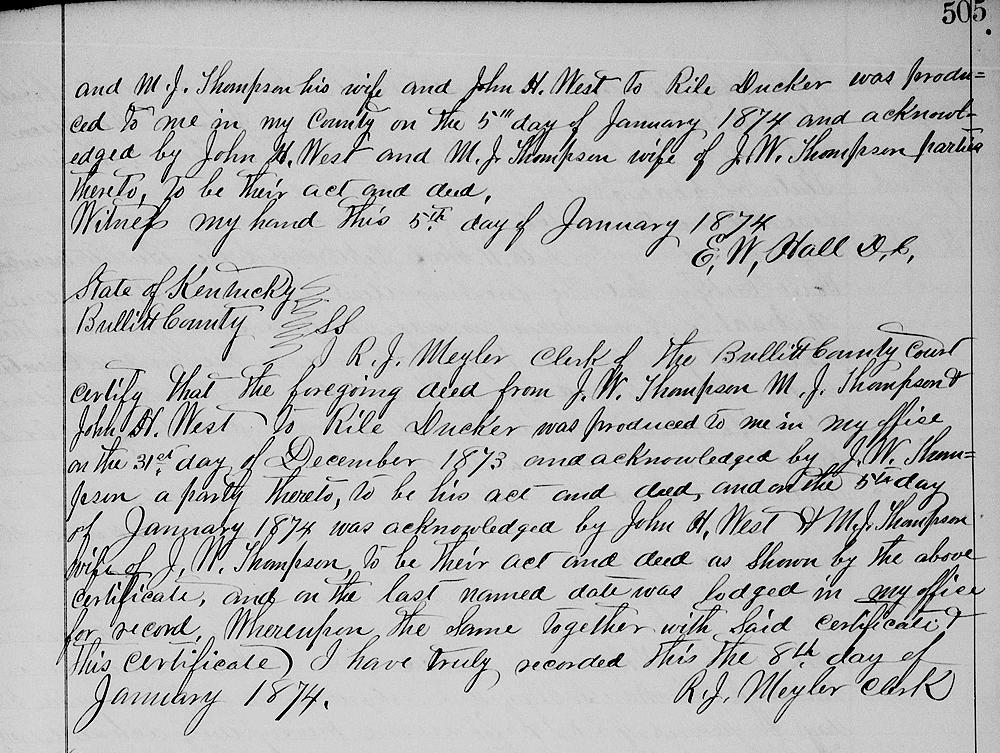 505.
and M. J. Thompson his wife and John H. West to Rile Ducker was produ=
ced to me in my County on the 5th day of January 1874 and acknowl-
edged by John H. West and M. J. Thompson wife of J. W. Thompson parties
thereto, to be their act and deed,
Witness my hand this 5th day of January 1874
E. W. Hall D. C.
State of Kentucky
Bullitt County SS
I R. J. Meyler Clerk of the Bullitt County Court
certify that the foregoing deed from J. W. Thompson M. J. Thompson &
John H. West to Rile Ducker was produced to me in my office
on the 31st day of December 1873 and acknowledged by J. W. Thom=
pson a party thereto, to be his act and deed, and on the 5th day
of January 1874 was acknowledged by John H. West & M. J. Thompson
wife of J. W. Thompson, to be their act and deed as shown by the above
certificate, and on the last named date was lodged in my office
for record. Whereupon the same together with said certificate &
this certificate I have truly recorded this the 8th day of
January 1874. R. J. Meyler Clerk